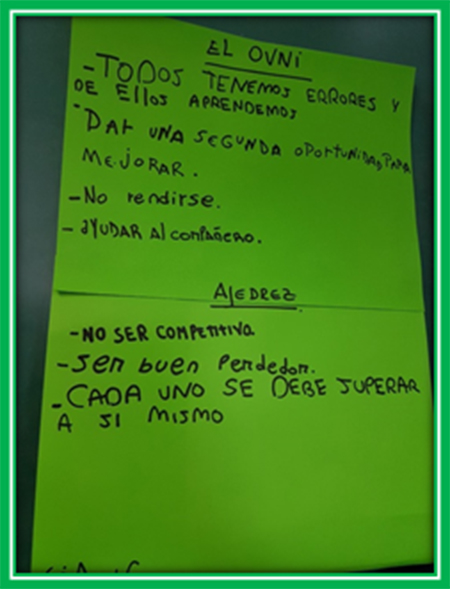 EL OVNI
-TODOS TENEMOS ERRORES Y
DE Ellos APRENDEMOS
-DAR UNA SEGUNDA OPORTUNIDAD PARA
MEJORAR.
-No rendirse.
-AYUDAR Al compañero.
AJEDREZ
-NO SER COMPETITIVA
-Ser buen Perdedor.
-CADA UNO SE DEBE SUPERAR
A SI MISMO